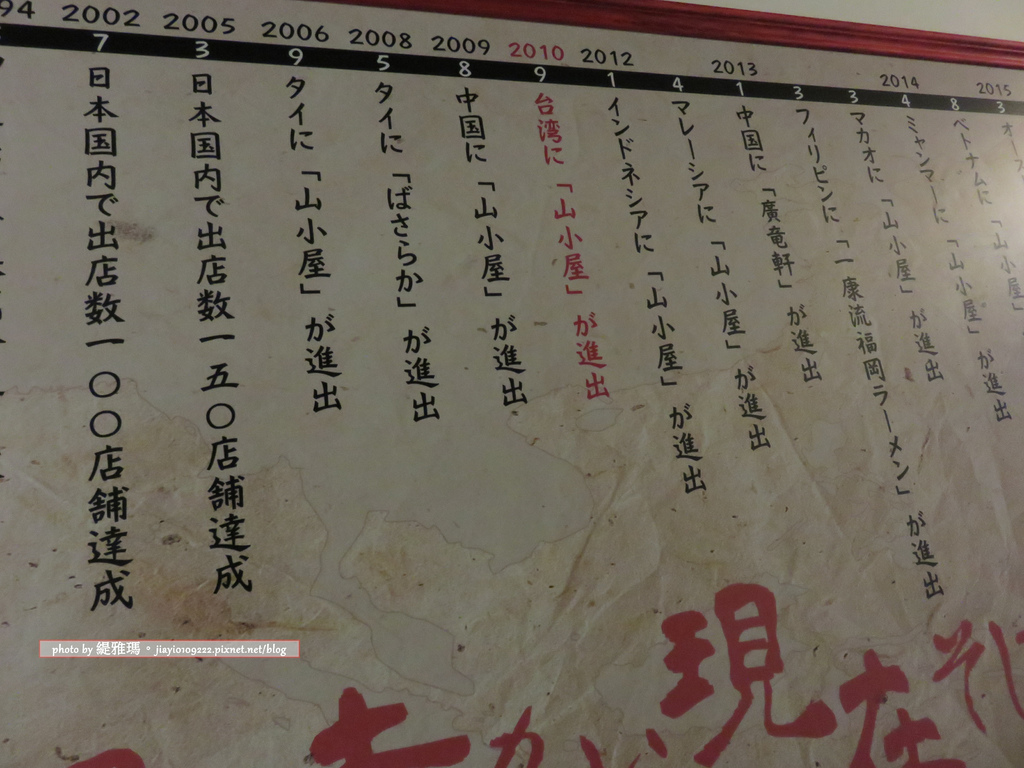 94 2002 2005 2006 2008 2009 2010 2012 2013 2014 2015
7 3 9 5 8 9 1 4 1 3 3 4 8 3
日本国内で出店数一〇〇店舗達成
日本国内で出店数一五〇店舗達成
タイに「山小屋」が進出
タイに「ばさらか」が進出
中国に「山小屋」が進出
台湾に「山小屋」が進出
インドネシアに「山小屋」が進出
マレーシアに「山小屋」が進出
中国に「廣竜軒」が進出
フィリピンに「一康流福岡ラーメン」が進出
マカオに「山小屋」が進出
ミャンマーに「山小屋」が進出
ベトナムに「山小屋」
オー
そし
現在
photo by 緹雅瑪。jiayi0109222.pixnet.net/blog